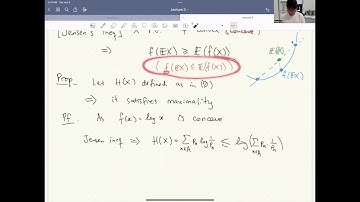 Lecture 3
[Jensen's Ineq]
f(EX) ≥ E(f(X))
( f(EX) ≤ E(f(X)) )
E f(X)
f(EX)
Prop. Let H(X) defined as in (D)
⟹ it satisfies maximality
Pf. As f(x) = log x is concave
Jensen ineq ⟹ H(X) = Σ Px log 1/Px ≤ log( Σ Px · 1/Px )
x∈A x∈A